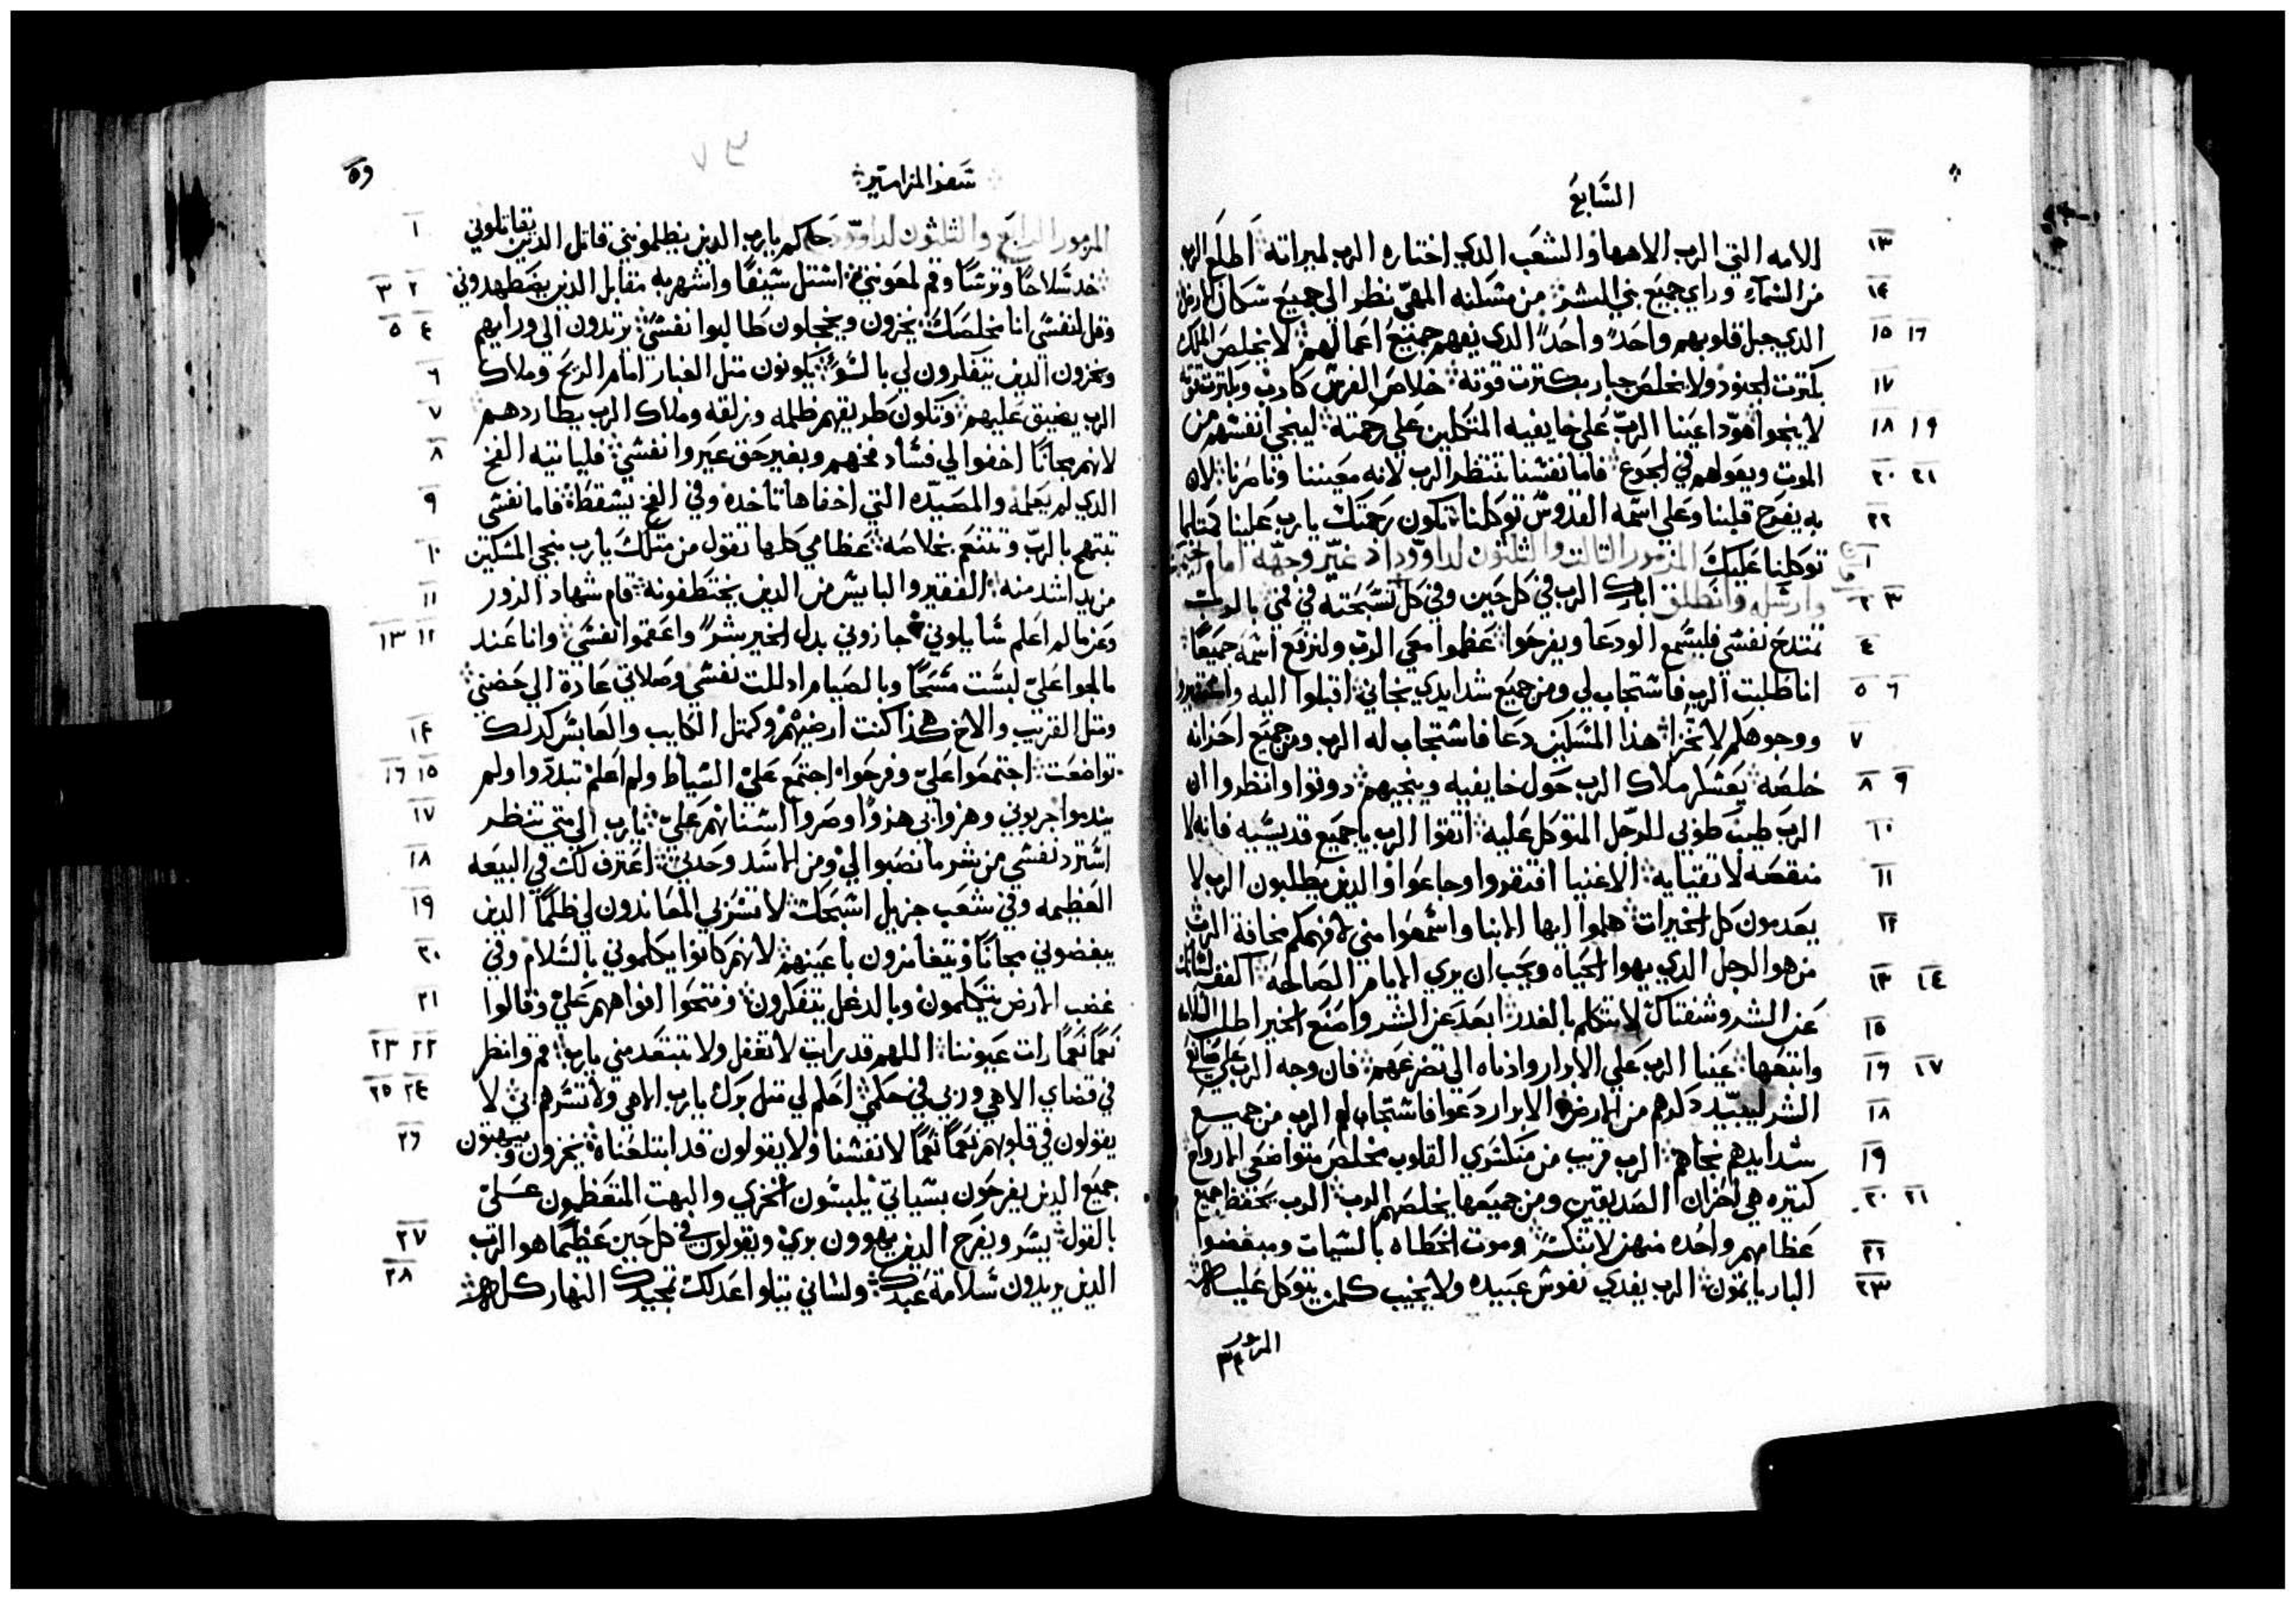 السابع
الامه التي الرب الاهها والشعب الدي اختاره الرب لميراته اطلع الرب
من السماء وراي جميع بني البشر من مسكنه المهيّ نظر الي جميع سكان الارض
الدي جبل قلوبهم واحدً واحدً الدي يفهم جميع اعمالهم لا يخلص الملك
بكترت الجنود ولا يخلص جبار بكترت قوته خلاص الفرس كادب وبكترت قوته
لا ينجوا هودا عينا الرب علي خايفيه المتكلين علي رحمته لينجي انفسهم من
الموت ويعولهم في الجوع فاما نفسنا تنتظر الرب لانه معيننا وناصرنا لان
به يفرح قلبنا وعلي اسمه القدوس توكلنا تكون رحمتك يارب علينا كمتلما
توكلنا عليك المزمور التالت والتلتون لداوود اد غيّر وجهه امام
وارسله وانطلق ابارك الرب في كل حين وفي كل تسبحته في فمي بالرب
تمتدح نفسي فليسمع الودعا ويفرحوا عظموا معي الرب ولنرفع اسمه جميعًا
انا طلبت الرب فاستجاب لي ومن جميع شدايدي نجاني اقبلوا اليه واستنيروا
ووجوهكم لا تخزا هذا المسكين دعا فاستجاب له الرب ومن جميع احزانه
خلصه يعسكر ملاك الرب حول خايفيه وينجيهم دوقوا وانظروا ان
الرب طيب طوبي للرجل المتوكل عليه اتقوا الرب يا جميع قديسيه فانه لا
منقصه لاتقيايه الاغنيا افتقروا وجاعوا والدين يطلبون الرب لا
يعدمون كل الخيرات هلموا ايها الابنا واسمعوا مني لافهمكم مخافة الرب
من هو الرجل الدي يهوا الحياه ويحب ان يري الايام الصالحه اكفف لسانك
عن الشر وشفتاك لا تتكلم بالغدر ابعد عن الشر واصنع الخير اطلب السلامه
واتبعها عينا الرب علي الابرار وادناه الي تضرعهم فان وجه الرب علي صانعي
الشر ليبيد دكرهم من الارض الابرار دعوا فاستجاب لهم الرب من جميع
شدايدهم نجاهم الرب قريب من منكسري القلوب مخلص متواضعي الارواح
كتيره هي احزان الصديقين ومن جميعها يخلصهم الرب الرب يحفظ جميع
عظامهم واحده منهن لا تنكسر وموت الخطاه بالسيات ومبغضوا
البار ياتمون الرب يفدي نفوس عبيده ولا يخيب كلمن يتوكل عليه
المزمور
٣٤
سفر المزامير
المزمور الرابع والتلتون لداوود حاكم يارب الدين يظلموني قاتل الدين يقاتلوني
خد سلاحًا وترسًا وقم لمعونتي استل سيفًا واشهر به مقابل الدين يضطهدوني
وقل لنفسي انا مخلصك يخزون ويخجلون طالبوا نفسي يرتدون الي ورايهم
ويخزون الدين يتفكرون لي بالسوء يكونون متل الغبار امام الريح وملاك
الرب يضيق عليهم وتكون طريقهم ظلمه وزلقه وملاك الرب يطاردهم
لانهم مجانًا اخفوا لي فساد فخهم وبغير حق عيروا نفسي فلياتيه الفخ
الدي لم يعلمه والمصيده التي اخفاها تاخده وفي الفخ يسقط فاما نفسي
تبتهج بالرب وتتنعم بخلاصه عظامي كلها تقول من متلك يارب منجي المسكين
من يد اشد منه الفقير والبايس من الدين يختطفونه قام شهاد الزور
وعن ما لم اعلم سايلوني جازوني بدل الخير بشرً واعقموا نفسي وانا عند
مالجوا علي لبست مسحًا وبالصيام ادللت نفسي وصلاتي عادة الي حضني
ومتل القريب والاخ هكذا كنت ارضيهم وكمتل الكايب والعابس كدلك
تواضعت اجتمعوا علي وفرحوا اجتمع علي السياط ولم اعلم تبددوا ولم
يندموا جربوني وهزوا بي هزوًا وصروا اسنانهم علي يارب الي متي تنظر
استرد نفسي من شر ما نصبوا لي ومن الاسد وحدتي اعترف لك في البيعه
العظيمه وفي شعب جزيل اسبحك لا تسر بي المعاندون لي ظلمًا الدين
يبغضوني مجانًا ويتغامزون باعينهم لانهم كانوا يكلموني بالسلام وفي
غضب الارض يتكلمون وبالدغل يتفكرون وفتحوا افواههم علي وقالوا
نعمًا نعمًا رات عيوننا اللهم قد رايت لا تغفل ولا تبتعد مني يارب قم وانظر
في قضاي الاهي وربي في حكمي احكم لي متل برك يارب الاهي ولا تسرهم بي لا
يقولون في قلوبهم نعمًا نعمًا لانفسنا ولا يقولون قد ابتلعناه يخزون ويبهتون
جميع الدين يفرحون بسياتي يلبسون الخزي والبهت المتعظمون علي
بالقول يسر ويفرح الدين يهوون بري ويقولون في كل حين عظيمًا هو الرب
الدين يريدون سلامة عبدك ولساني يتلوا عدلك تمجيدك النهار كله